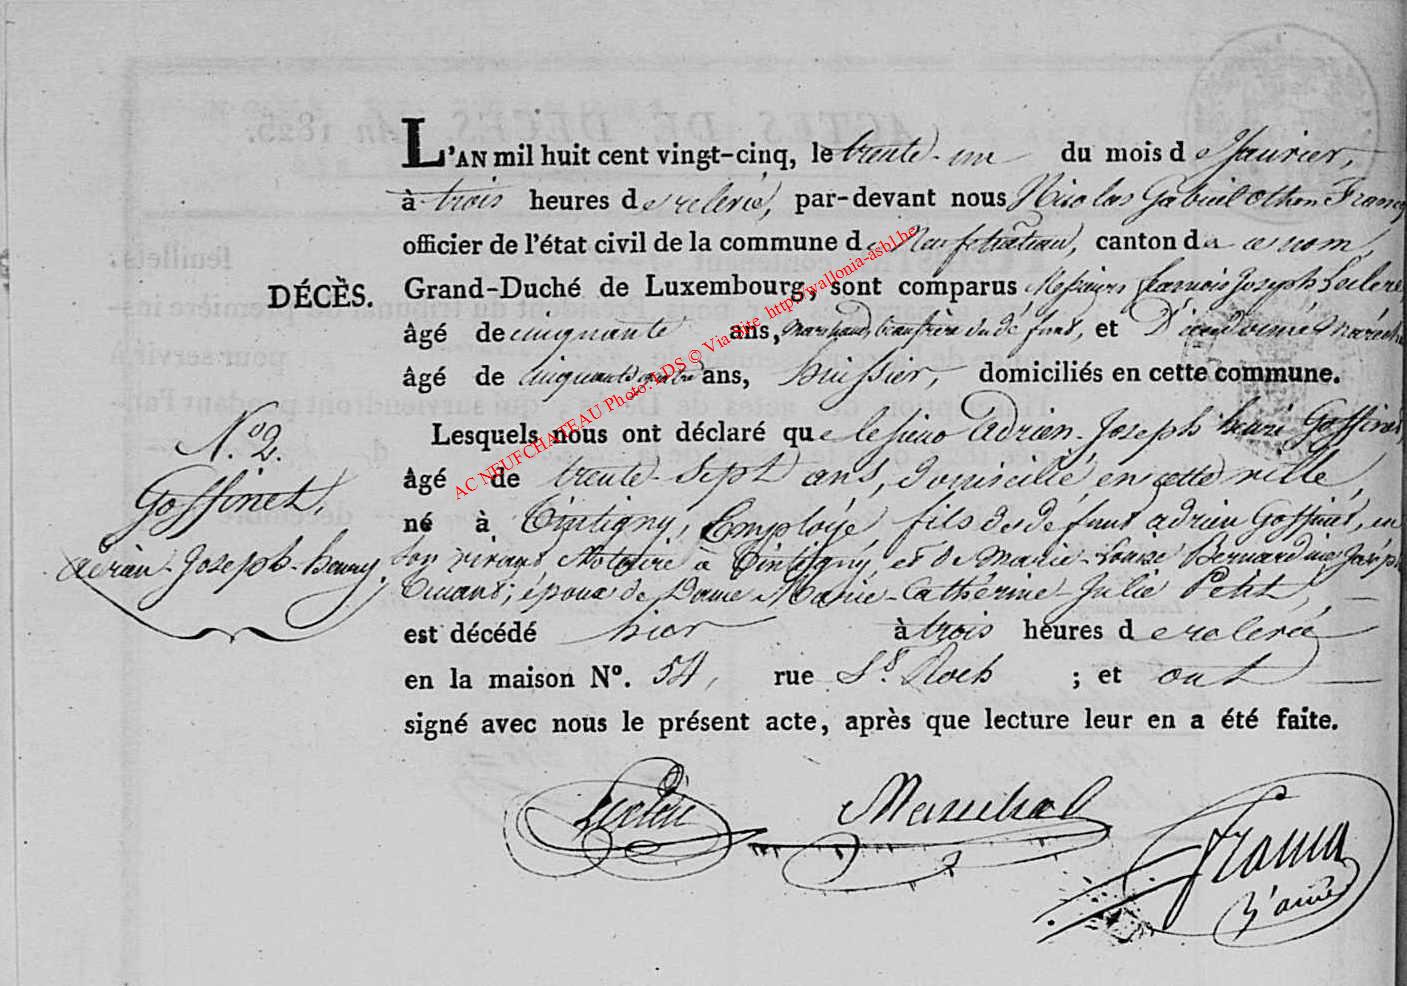 L'AN mil huit cent vingt-cinq, le trente-un du mois de Janvier,
à trois heures de relevée, par-devant nous Nicolas Gabriel Othon Francq
officier de l'état civil de la commune de Neufchâteau, canton de ce nom,
DÉCÈS. Grand-Duché de Luxembourg, sont comparus Messieurs francois Joseph Leclere,
âgé de cinquante ans, marchand, beaufrère du défunt, et Dieudonné Maréchal
âgé de cinquante quatre ans, huissier, domiciliés en cette commune.
Lesquels nous ont déclaré que le sieur Adrien-Joseph henri Goffinet
N.o 2.
âgé de trente-sept ans, domicilié en cette ville,
Goffinet,
né à Tintigny, Employé, fils de défunt adrien Goffinet, en
Adrien-Joseph-henry
son vivant Notaire à Tintigny, et de Marie-Louise Bernardine
épouse de Dame Marie-Catherine-Julie Petit,
est décédé hier à trois heures de relevée
en la maison No. 54, rue St. Roch ; et ont
signé avec nous le présent acte, après que lecture leur en a été faite.
Marechal
AC NEUFCHATEAU Photo: LDS © Via site http://wallonia-asbl.be
ACTES DE DÉCÈS. An 1825.
feuillets,
pour servir à